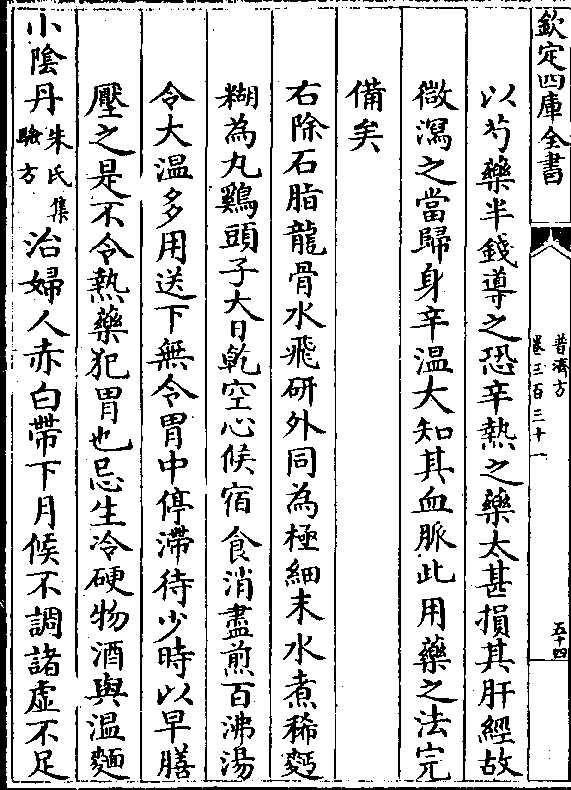 欽定四庫全書
普濟方
卷三百三十一
五十四
以芍藥半錢導之恐辛熱之藥太甚損其肝經故
微瀉之當歸身辛溫大知其血脈此用藥之法完
備矣
右除石脂龍骨水飛研外同為極細末水煮稀麪
糊為丸鷄頭子大日乾空心候宿食消盡煎百沸湯
令大溫多用送下無令胃中停滯待少時以早膳
壓之是不令熱藥犯胃也忌生冷硬物酒與溫麵
小陰丹朱氏集驗方治婦人赤白帶下月候不調諸虛不足